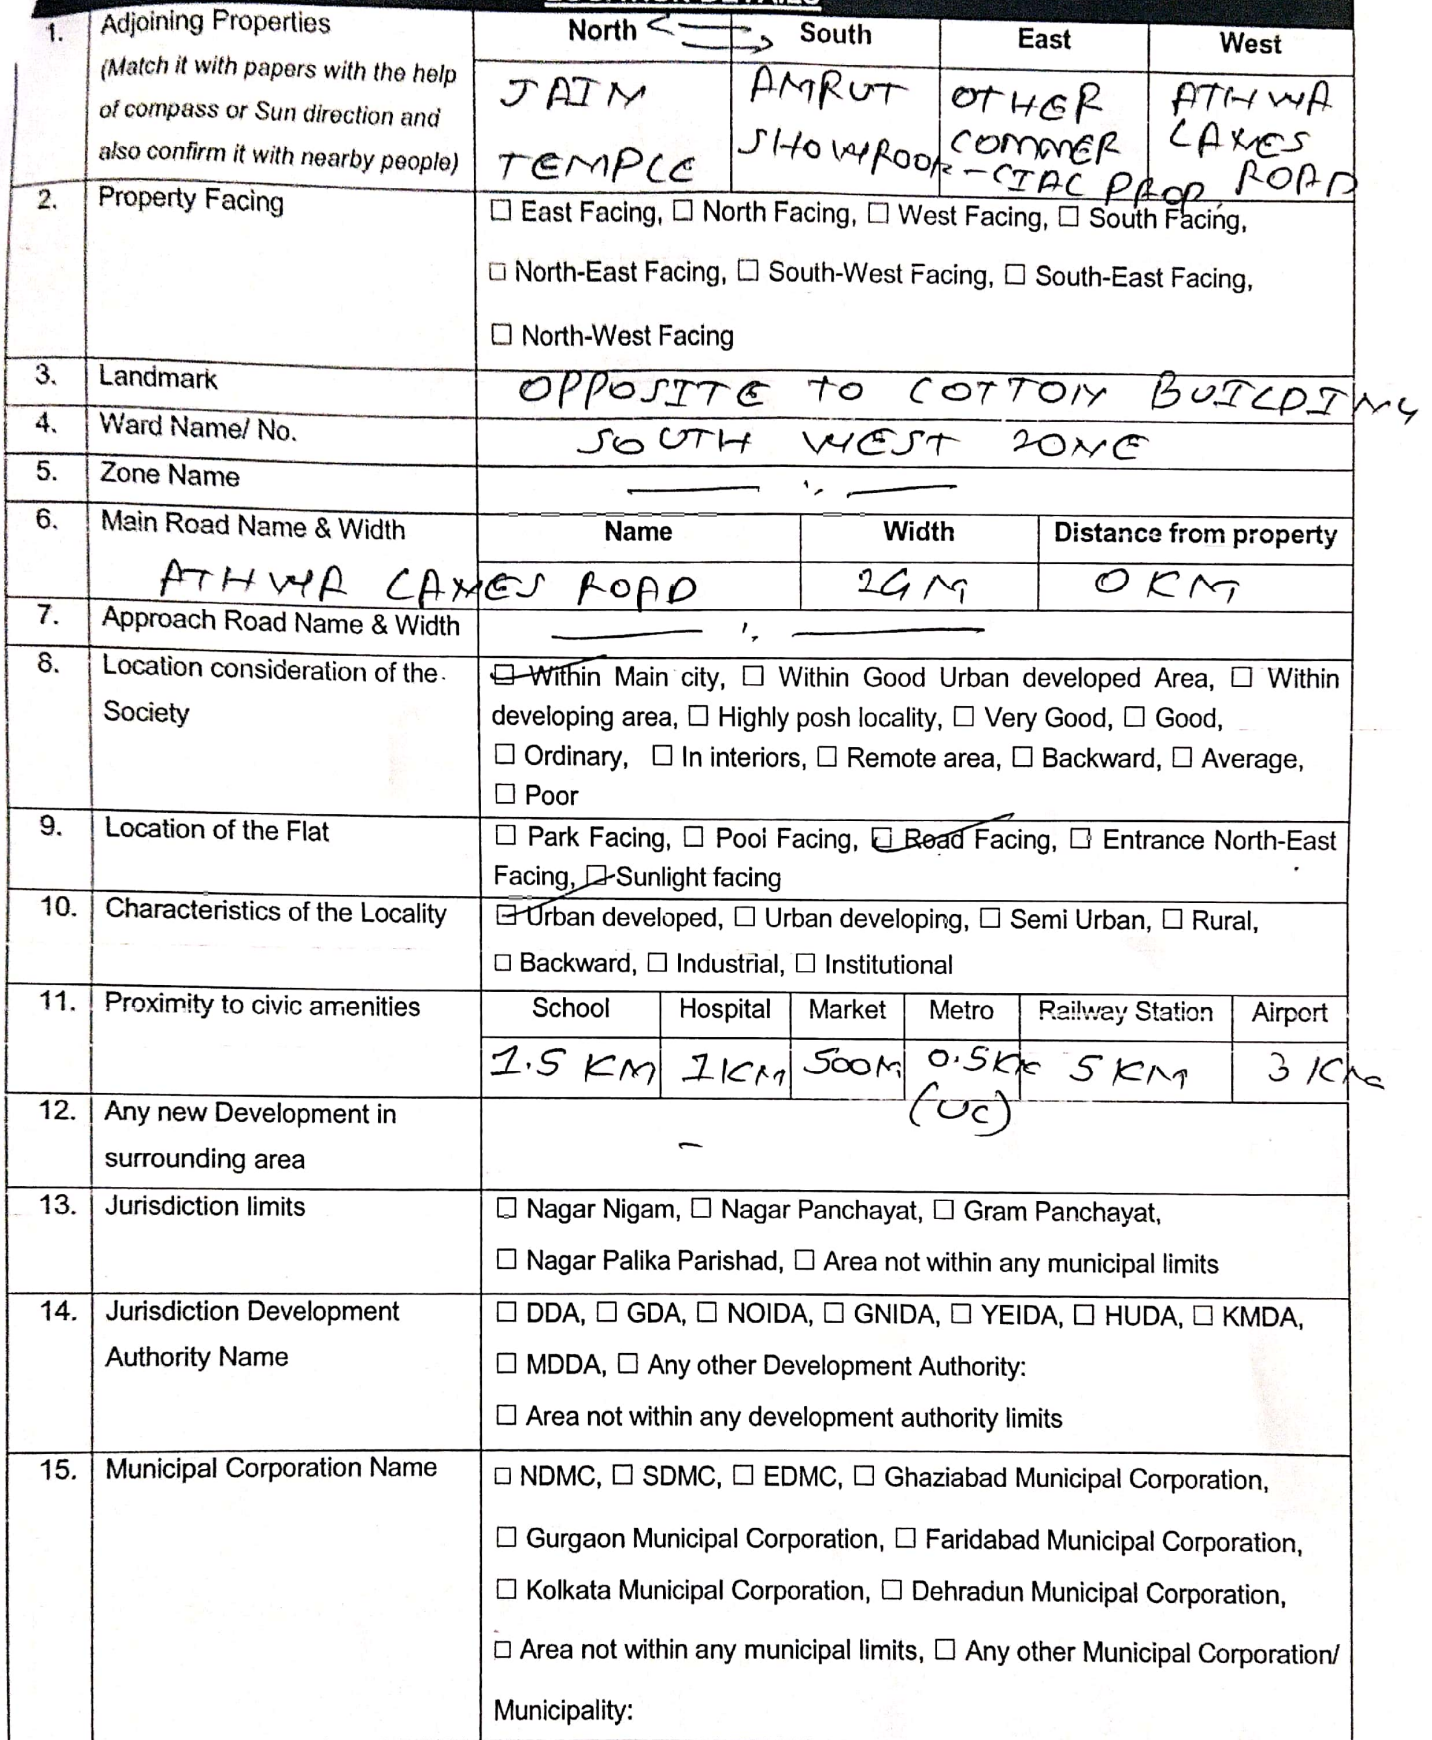 LOCATION DETAILS
1. Adjoining Properties
(Match it with papers with the help
of compass or Sun direction and
also confirm it with nearby people)
North South East West
JAIN
TEMPLE
AMRUT
SHOWROOM
OTHER
COMMER
-CIAL PROP.
ATHWA
LANES
ROAD
2. Property Facing
☐ East Facing, ☐ North Facing, ☐ West Facing, ☐ South Facing,
☐ North-East Facing, ☐ South-West Facing, ☐ South-East Facing,
☐ North-West Facing
3. Landmark OPPOSITE TO COTTON BUILDING
4. Ward Name/ No. SOUTH WEST ZONE
5. Zone Name — ,, —
6. Main Road Name & Width Name Width Distance from property
ATHWA LANES ROAD 0 KM
7. Approach Road Name & Width — ,, —
8. Location consideration of the
Society
☑ Within Main city, ☐ Within Good Urban developed Area, ☐ Within
developing area, ☐ Highly posh locality, ☐ Very Good, ☐ Good,
☐ Ordinary, ☐ In interiors, ☐ Remote area, ☐ Backward, ☐ Average,
☐ Poor
9. Location of the Flat
☐ Park Facing, ☐ Pool Facing, ☑ Road Facing, ☐ Entrance North-East
Facing, ☑ Sunlight facing
10. Characteristics of the Locality
☑ Urban developed, ☐ Urban developing, ☐ Semi Urban, ☐ Rural,
☐ Backward, ☐ Industrial, ☐ Institutional
11. Proximity to civic amenities
School Hospital Market Metro Railway Station Airport
1.5 KM 1 KM 500M 0.5KM 5 KM 3 KM
(UC)
12. Any new Development in
surrounding area
–
13. Jurisdiction limits
☐ Nagar Nigam, ☐ Nagar Panchayat, ☐ Gram Panchayat,
☐ Nagar Palika Parishad, ☐ Area not within any municipal limits
14. Jurisdiction Development
Authority Name
☐ DDA, ☐ GDA, ☐ NOIDA, ☐ GNIDA, ☐ YEIDA, ☐ HUDA, ☐ KMDA,
☐ MDDA, ☐ Any other Development Authority:
☐ Area not within any development authority limits
15. Municipal Corporation Name
☐ NDMC, ☐ SDMC, ☐ EDMC, ☐ Ghaziabad Municipal Corporation,
☐ Gurgaon Municipal Corporation, ☐ Faridabad Municipal Corporation,
☐ Kolkata Municipal Corporation, ☐ Dehradun Municipal Corporation,
☐ Area not within any municipal limits, ☐ Any other Municipal Corporation/
Municipality: